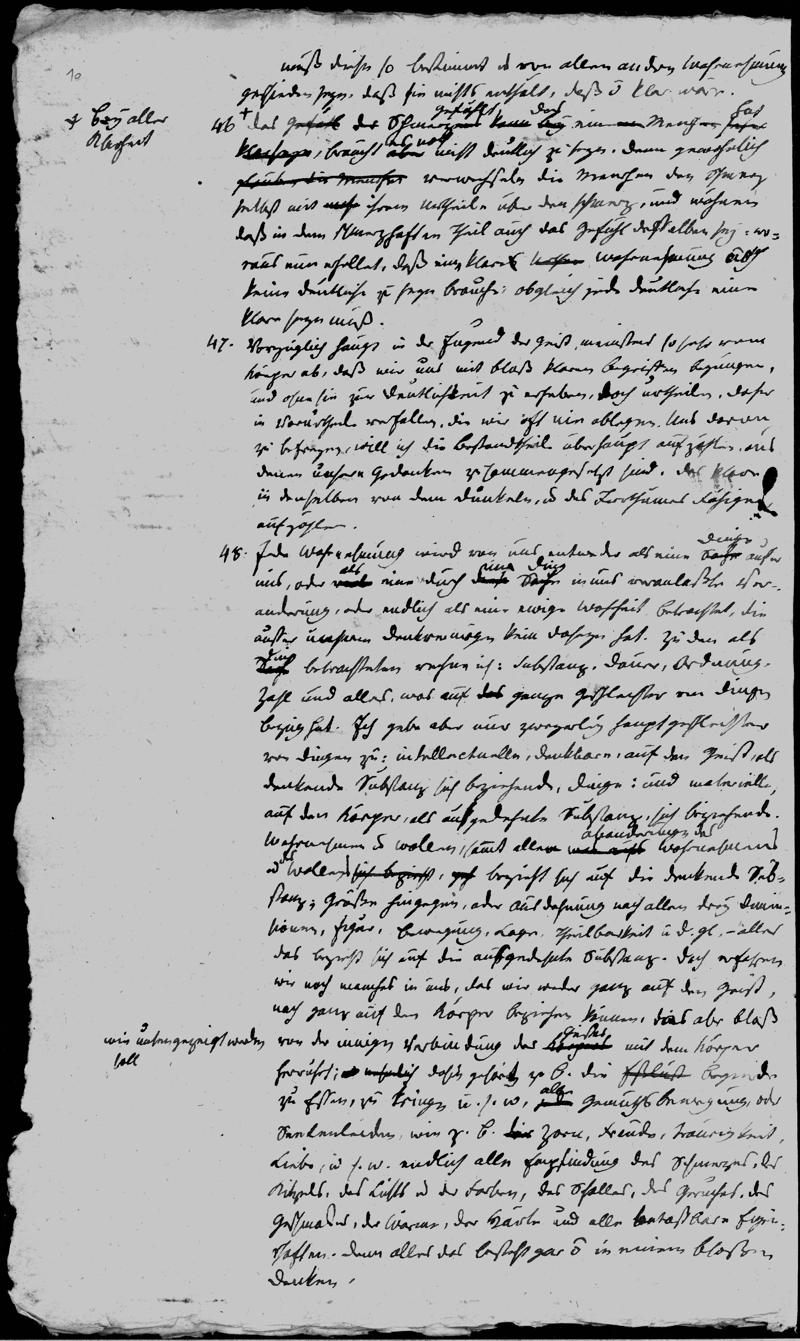 10
muß diese so bestimmt u von allen andern Wahrnehmung
geschieden seyn, daß sie nichts enthält, daß ō klar wäre.
+ bey aller
Klarheit
46 + das Gefühl des Schmerzens gefühlt, das ein Mensch hat
braucht aber nicht deutlich zu seyn. denn gewöhnlich
glauben die Menschen verwechseln die Menschen den Schmerz
selbst mit ihrem Urtheile über den Schmerz, und wähnen
daß in dem schmerzhaften Theil auch das Gefühl desselben sey: wo=
raus nun erhellet, daß eine klare Wahrnehmung
keine deutliche zu seyn brauche: obgleich jede deutliche eine
klare seyn muß.
47. Vorzüglich hängt in der Jugend der Geist meistens so sehr vom
Körper ab, daß wir uns mit bloß klaren begriffen begnügen,
und ohne sie zur Deutlichkeit zu erheben, doch urtheilen, daher
in Vorurtheile verfallen, die wir oft nie ablegen. Uns davon
zu befreyen, will ich die bestandtheile überhaupt aufzählen, aus
denen unsere Gedanken zusammengesetzt sind, das klare
in denselben von dem dunkeln, u des Irrthumes fähigen
aufzählen.
48. Jede Wahrnehmung wird von uns entweder als eine Sache Dinge außer
uns, oder als eine durch eine Ding in uns veranlaßte Ver=
änderung, oder endlich als eine ewige Wahrheit betrachtet, die
außer unserem denkvermögen kein daseyn hat. Zu den als
Ding betrachteten rechne ich: Substanz, Dauer, Ordnung,
Zahl und alles, was auf das ganze Geschlechter von Dingen
bezug hat. Ich gebe aber nur zweyerley hauptgeschlechter
von Dingen zu: intellectuelle, denkbare, auf den Geist, als
denkende Substanz sich beziehende, Dinge: und materielle,
auf den Körper, als ausgedehnte Substanz, sich beziehende.
Wahrnehmen u wollen, samt allen abänderungen des Wahrnehmens
u des Wollens sich bezieht, bezieht sich auf die denkende Sub=
stanz; Größe hingegen, oder Ausdehnung nach allen drey Dimen=
sionen, figur, bewegung, Lage, Theilbarkeit u d. gl. – alles
das bezieht sich auf die ausgedehnte Substanz. Doch erfahren
wir noch manches in uns, das wir weder ganz auf den Geist,
noch ganz auf den Körper beziehen können, das aber bloß
wie unten gezeigt werden
soll
von der innigen Verbindung des Körpers Geistes mit dem Körper
herrührt; dahin gehört z. B. die Eßlust begierde
zu Essen, zu trinken u. s. w., alle Gemüthsbewegung, oder
Seelenleiden, wie z. B. Zorn, Freude, Traurigkeit,
Liebe, u s. w. endlich alle Empfindung des Schmerzes, des
Kitzels, des Lichts u der Farben, des Schalles, des Geruches, des
Geschmackes, der Wärme, der Härte und alle betastbare Eigen=
schaften. denn alles das besteht gar ō in einem bloßen
denken,